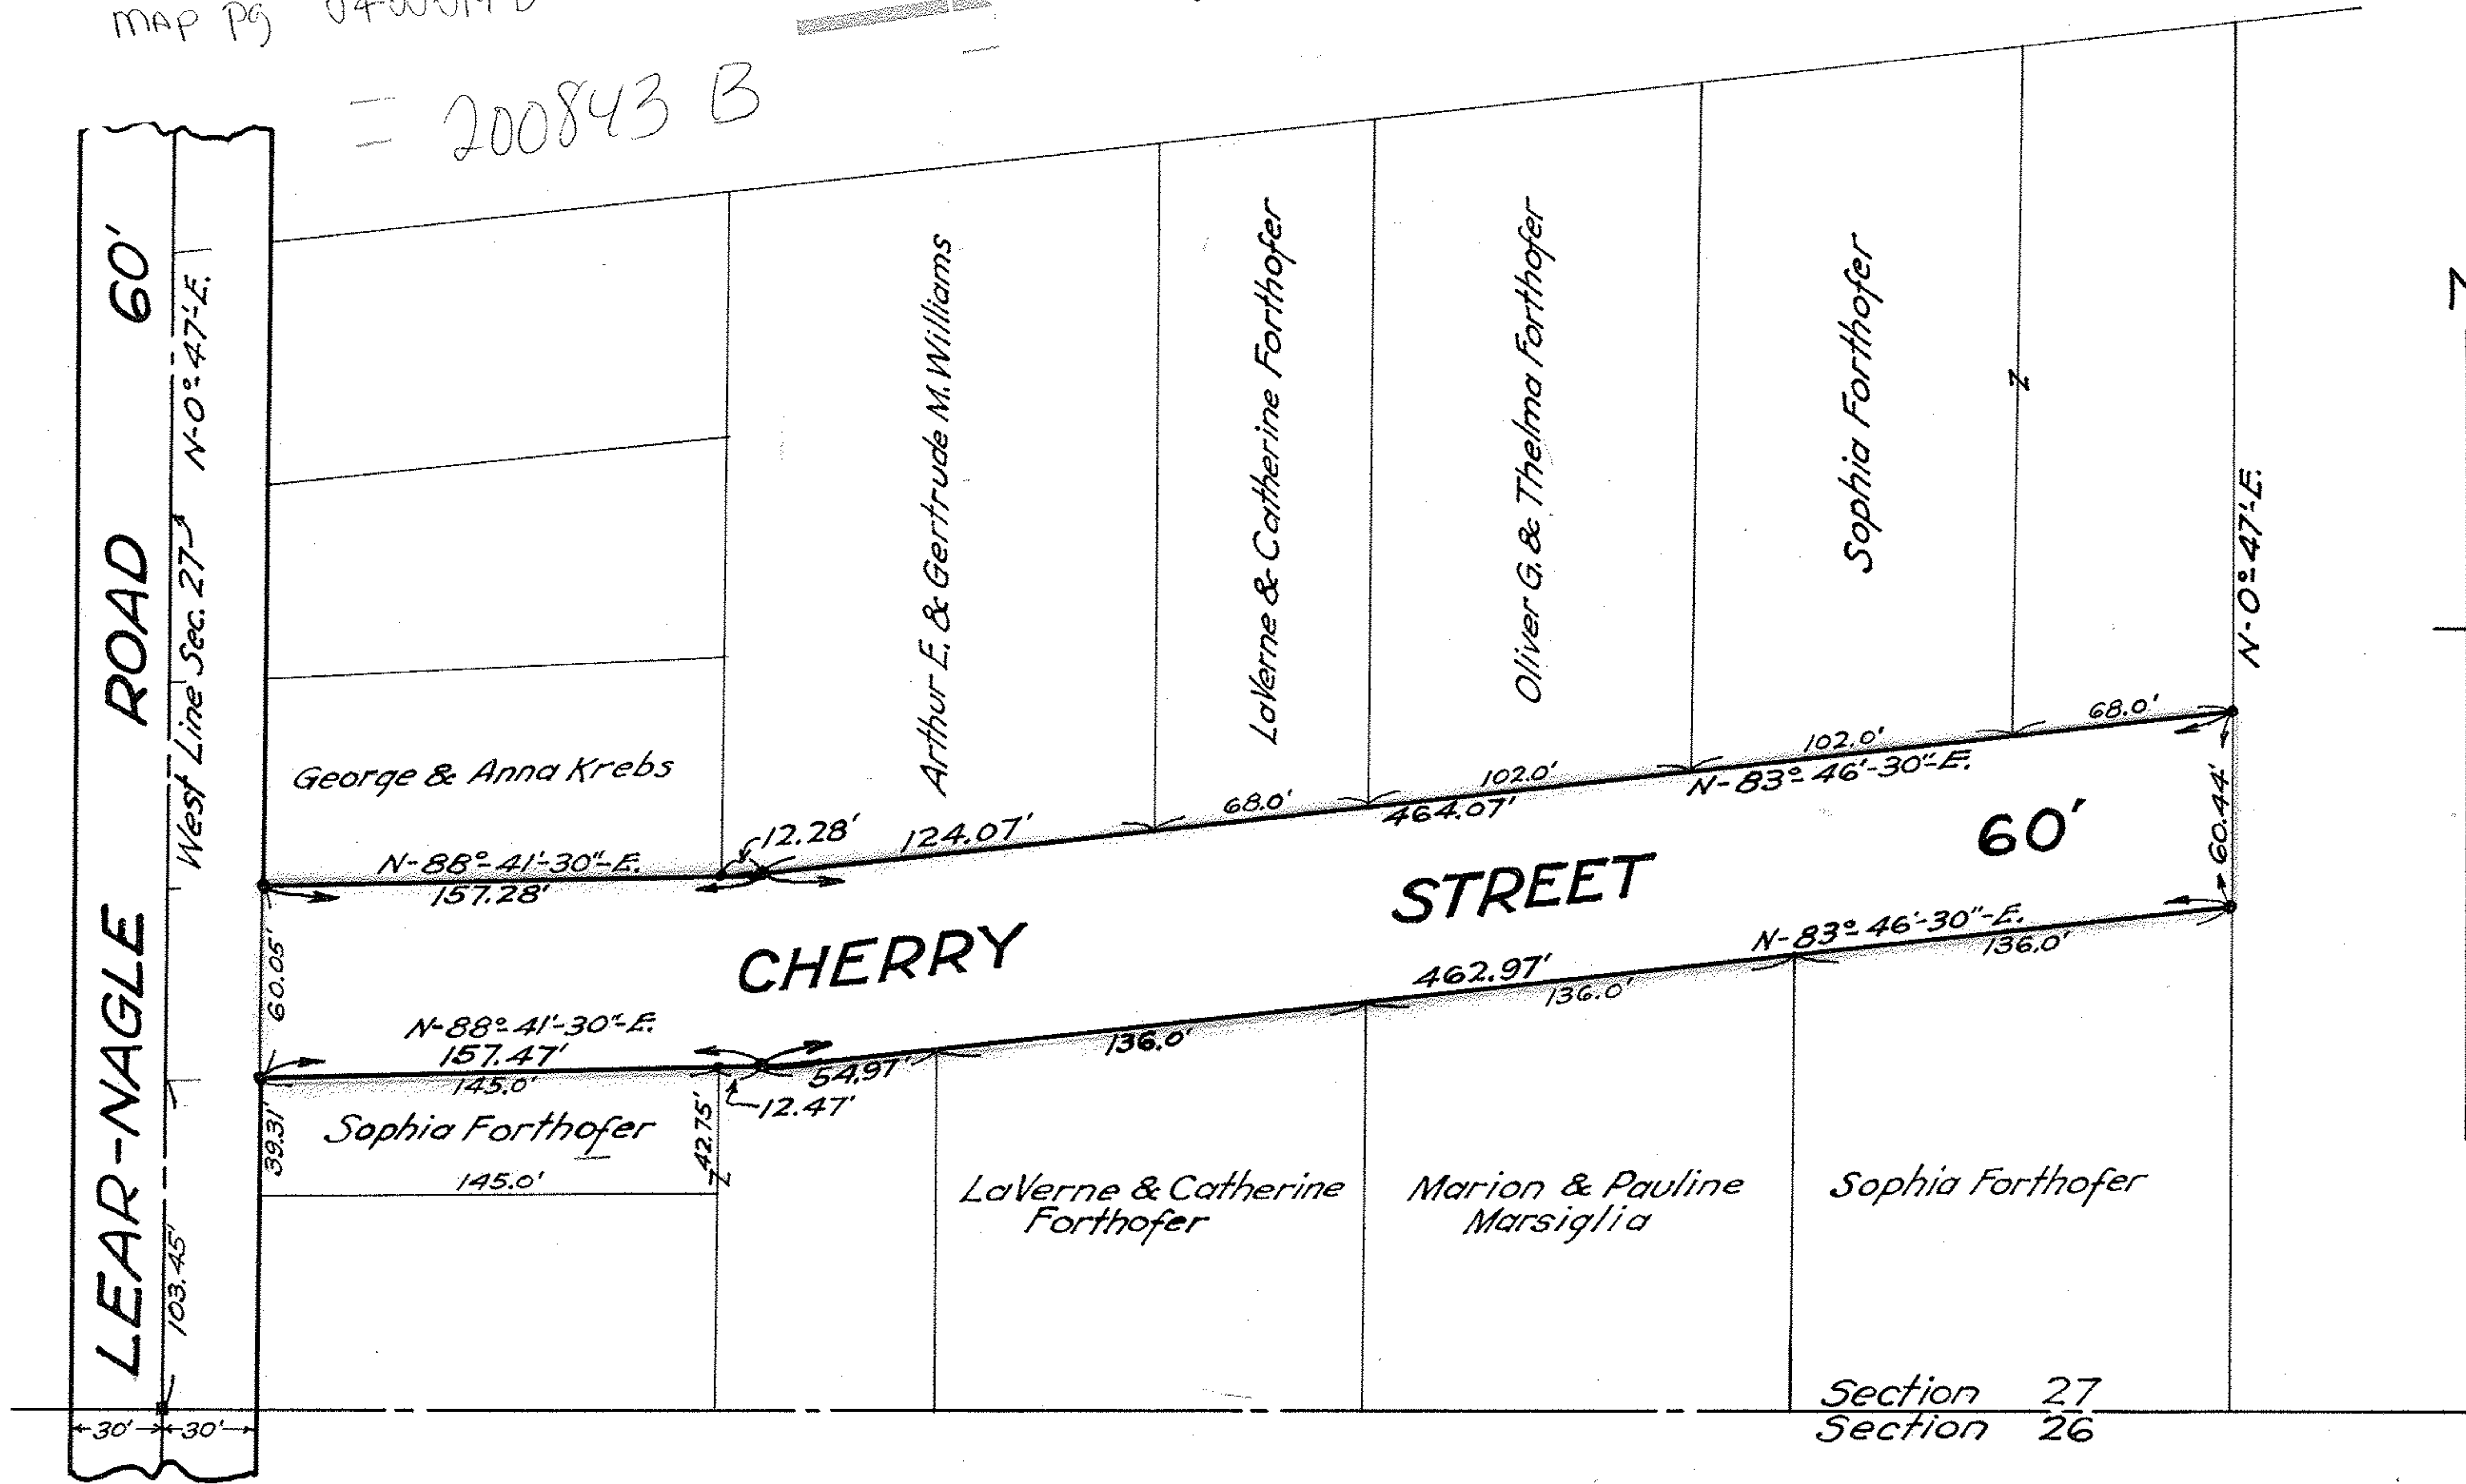 MAP Pg
= 200843 B
LEAR-NAGLE ROAD 60'
West Line Sec. 27
N-0°-47'-E.
103.45'
30'
30'
George & Anna Krebs
Arthur E. & Gertrude M. Williams
LaVerne & Catherine Forthofer
Oliver G. & Thelma Forthofer
Sophia Forthofer
Z
N-0°-47'-E.
N-88°-41'-30"-E.
157.28'
12.28'
124.07'
68.0'
102.0'
464.07'
102.0'
N-83°-46'-30"-E.
68.0'
60.05'
CHERRY STREET 60'
60.44'
N-88°-41'-30"-E.
157.47'
145.0'
12.47'
54.97'
136.0'
462.97'
136.0'
N-83°-46'-30"-E.
136.0'
39.31'
Sophia Forthofer
42.75'
Z
145.0'
LaVerne & Catherine
Forthofer
Marion & Pauline
Marsiglia
Sophia Forthofer
Section 27
Section 26